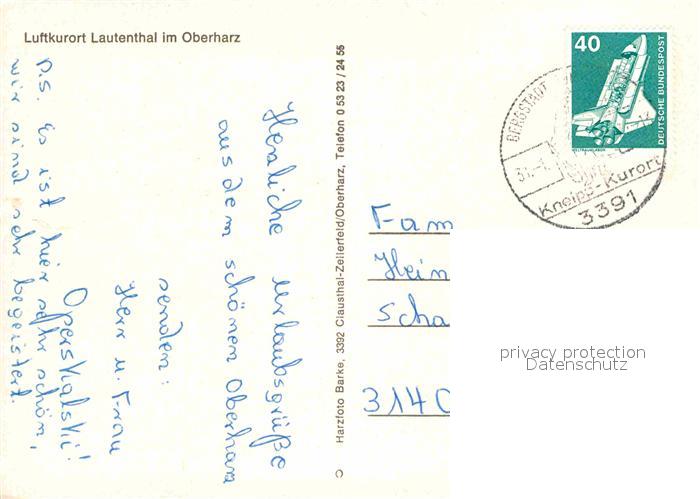 Luftkurort Lautenthal im Oberharz
Herzliche Urlaubsgrüße
aus dem schönen Oberharz
senden:
Herr u. Frau
Operskalski!
P.S. Es ist hier sehr schön,
wir sind sehr begeistert.
Harzfoto Barke, 3392 Clausthal-Zellerfeld/Oberharz, Telefon 0 53 23 / 24 56
40
DEUTSCHE BUNDESPOST
WELTRAUMLABOR
BERGSTADT
Kneipp-Kurort
3391
Fam
Hein
Scha
3140
privacy protection
Datenschutz